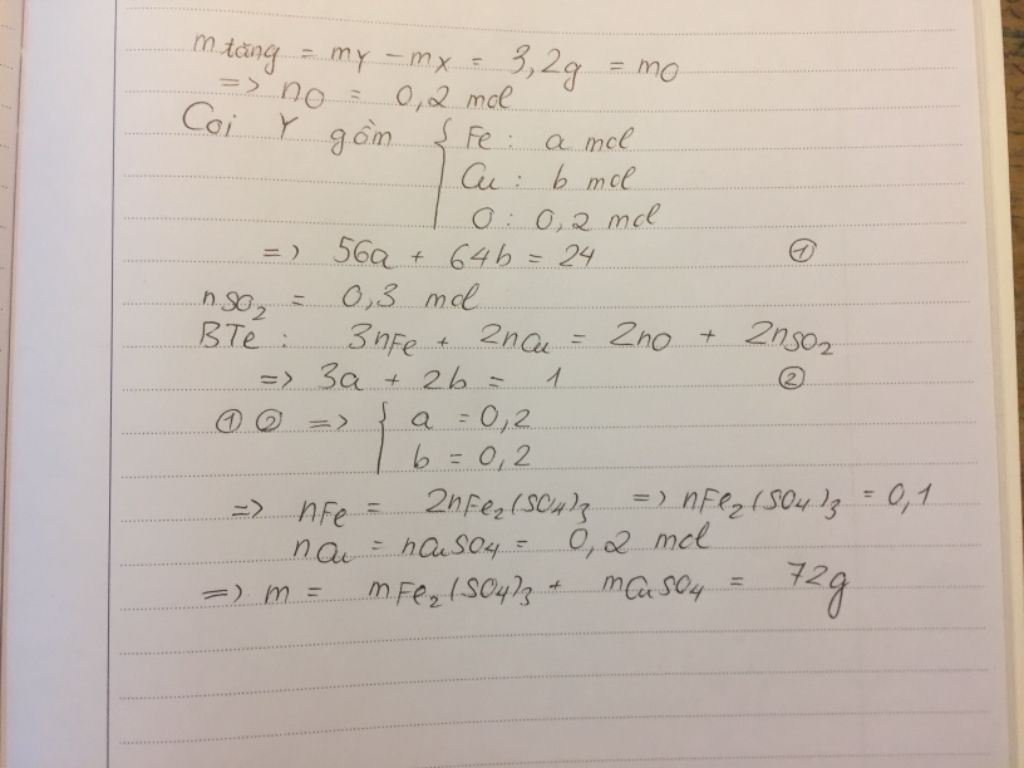 m tăng = mY - mX = 3,2g = mO
=> nO = 0,2 mol
Coi Y gồm { Fe : a mol
Cu : b mol
O : 0,2 mol
=> 56a + 64b = 24 ①
nSO₂ = 0,3 mol
BTe : 3nFe + 2nCu = 2nO + 2nSO₂
=> 3a + 2b = 1 ②
① ② => { a = 0,2
b = 0,2
=> nFe = 2nFe₂(SO₄)₃ => nFe₂(SO₄)₃ = 0,1
nCu = nCuSO₄ = 0,2 mol
=> m = mFe₂(SO₄)₃ + mCuSO₄ = 72g